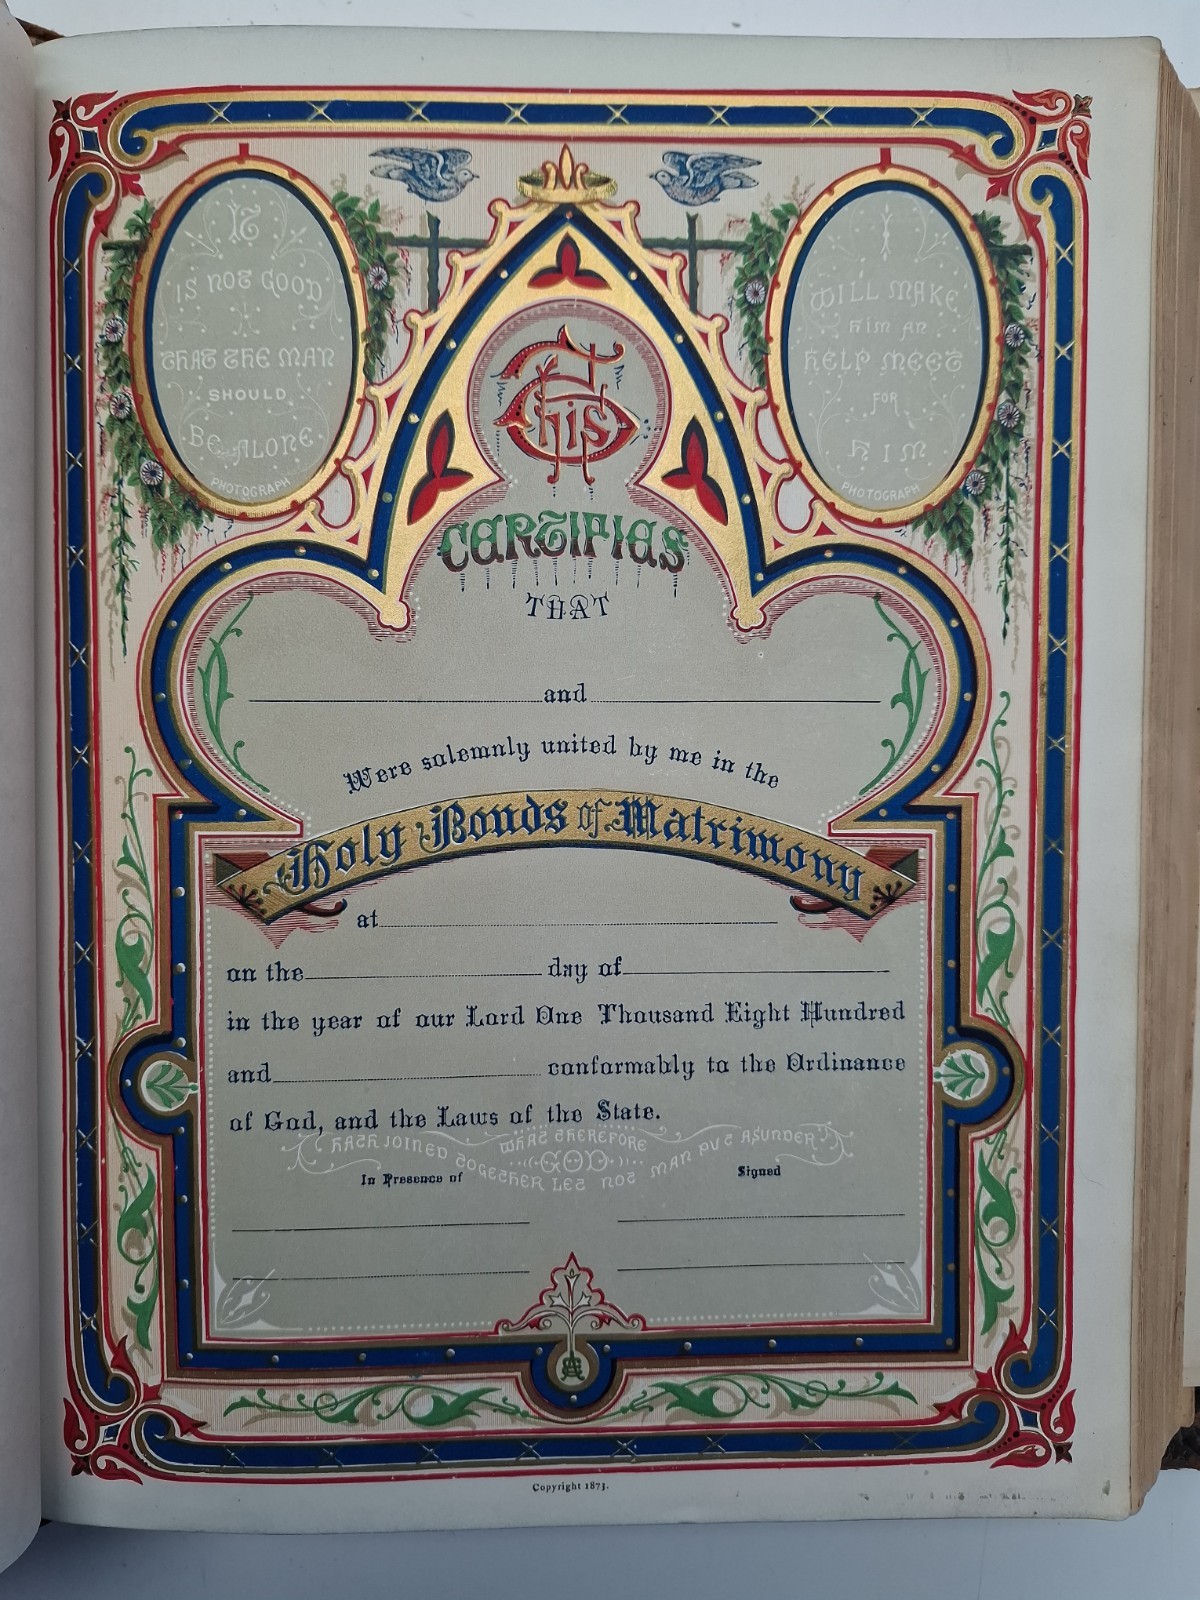 IT
IS NOT GOOD
THAT THE MAN
SHOULD
BE ALONE.
PHOTOGRAPH
I
WILL MAKE
HIM AN
HELP MEET
FOR
HIM
PHOTOGRAPH
This
CERTIFIES
THAT
and
Were solemnly united by me in the
Holy Bonds of Matrimony
at
on the day of
in the year of our Lord One Thousand Eight Hundred
and conformably to the Ordinance
of God, and the Laws of the State.
WHAT THEREFORE
GOD
HATH JOINED TOGETHER LET NOT MAN PUT ASUNDER
In Presence of
Signed
Copyright 1873.